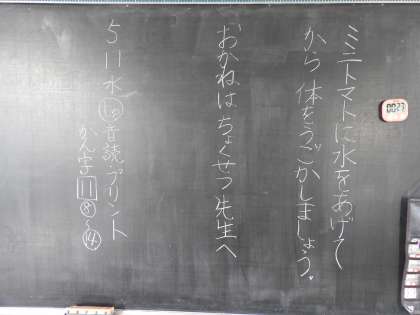 ミニトマトに水をあげて
から体をうごかしましょう。
おかねはちょくせつ先生へ
5 11 水
音読・プリント
かん字 11 ⑧〜⑭